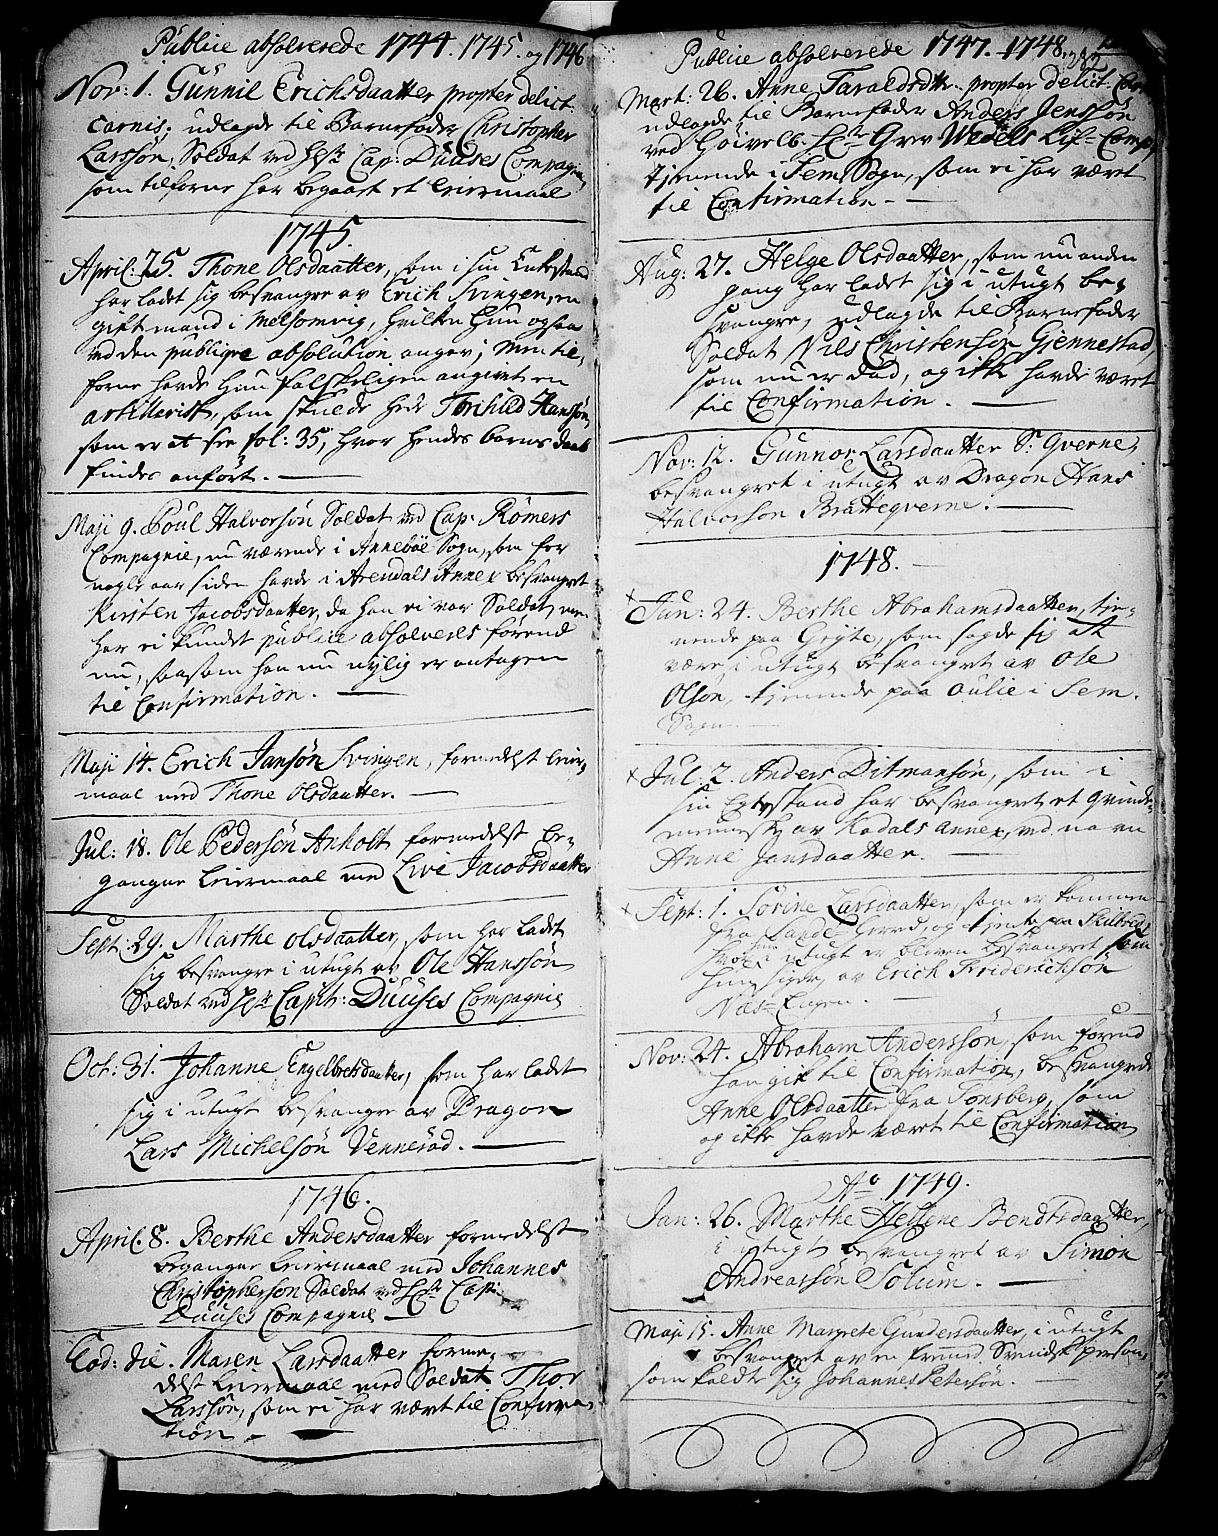 Publice absolverede 1744. 1745. og 1746
Nov: 1. Gunnil Erichsdaatter propter delict:
carnis; udlagde til Barnefader Christopher
Larssøn, Soldat ved Hr Cap: Duuses Compagnie,
som tilforne har begaaet et leiermaal
1745.
April: 25. Thone Olsdaatter, som i sin Enkestand
har ladet sig besvangre av Erich Svingen, en
gift mand i Melsomvig, hvilken hun ogsaa
ved den publique absolution angav; men til-
forne havde hun falskeligen angivet en
artillerist, som skulde hede Torchild Hanssøn,
som er at see fol: 35, hvor hendes barns daab
findes anført.
Maji 9. Poul Halvorsøn Soldat ved Cap: Rømers
Compagnie, nu værende i Annebøe Sogn, som for
nogle aar siden havde i Arendals Annex besvangret
Kirsten Jacobsdaatter, da han ei var Soldat, men
har ei kundet publice absolveres førend
nu, saasom han nu nylig er antagen
til Confirmation.
Maji 14. Erich Jansøn Svingen, formedelst leier-
maal med Thone Olsdaatter.
Jul: 18. Ole Pedersøn Anholt formedelst be-
gangne leiermaal med Live Jacobsdaatter
Sept: 29. Marthe Olsdaatter, som har ladet
sig besvangre i utugt av Ole Hanssøn
Soldat ved Hr Capt: Duuses Compagnie
Oct: 31. Johanne Engelbretsdaatter, som har ladet
sig i utugt besvangre av Dragon
Lars Michelsøn Vennerød.
1746.
April 8. Berthe Andersdaatter formedelst
begangne leiermaal med Johannes
Christophersøn Soldat ved Hr Capt:
Duuses Compagnie
Eod: die. Maren Larsdaatter forme-
delst leiermaal med Soldat Thor
Larssøn, som ei har vært til Confirma-
tion.
Publice absolverede 1747. 1748.
Mart: 26. Anne Taraldsdtr. propter delict: Carn:
udlagde til Barnefader Anders Jenssøn
ved Høivelb. Hr Grev Wedels Lif-Comp,
tjenende i Sem Sogn, som ei har været
til Confirmation.
Aug: 27. Helge Olsdaatter, som nu anden
gang har ladet sig i utugt be-
svangre, udlagde til Barnefader
Soldat Nils Christensøn Gjennestad,
som nu er død, og ikke havde været
til Confirmation.
Nov: 12. Gunnor Larsdaatter S: Qverne,
besvangret i utugt av Dragon Hans
Halvorsøn Brattegverne.
1748.
Jun: 24. Berthe Abrahamsdaatter, tje-
nende paa Gryte, som sagde sig at
være i utugt besvangret av Ole
Olsøn, tjenende paa Aulie i Sem.
Sogn.
Jul: 2. Anders Ditmansøn, som i
sin Egtestand har besvangret et qvinde-
menniske av Kodals annex, ved navn
Anne Jansdaatter.
Sept: 1. Sørine Larsdaatter, som er kommen
fra Sande Herred, og tjente paa Skilbred
hvor hun i utugt er bleven besvangret, som
hun siger, av Erich Friderichsøn
Næs Engen.
Nov: 24. Abraham Anderssøn, som førend
han gik til Confirmation, besvangrede
Anne Olsdaatter fra Tønsberg, som
og ikke havde været til Confirmation
Ao 1749.
Jan: 26. Marthe Hellene Bendtsdaatter,
i utugt besvangret av Simon
Andreassøn Solum.
Maji 15. Anne Margrete Gundersdaatter, i utugt
besvangret av en fremmed Svensk person,
som kaldte sig Johannes Petersøn.